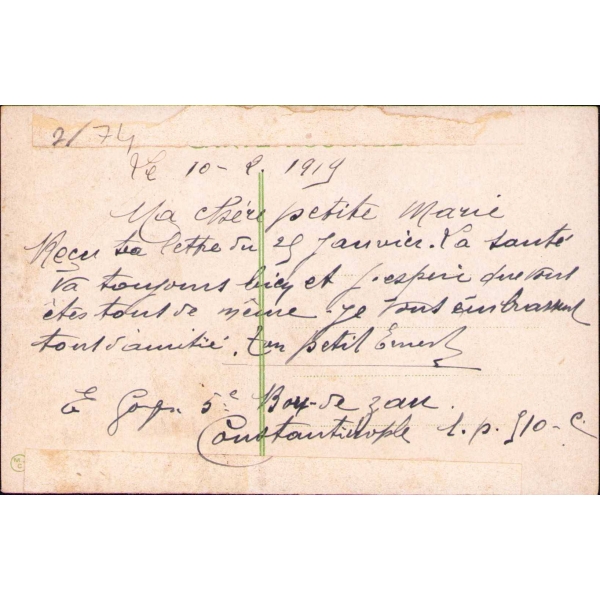 2/74
le 10-2. 1919
Ma chère petite Marie
Reçu ta lettre du 25 Janvier. La santé
va toujours bien et j'espère que vous
êtes tous de même. Je vous embrasse
tout d'amitié. Ton petit Ernest
E 5e de zau.
Constantinople 510-C.